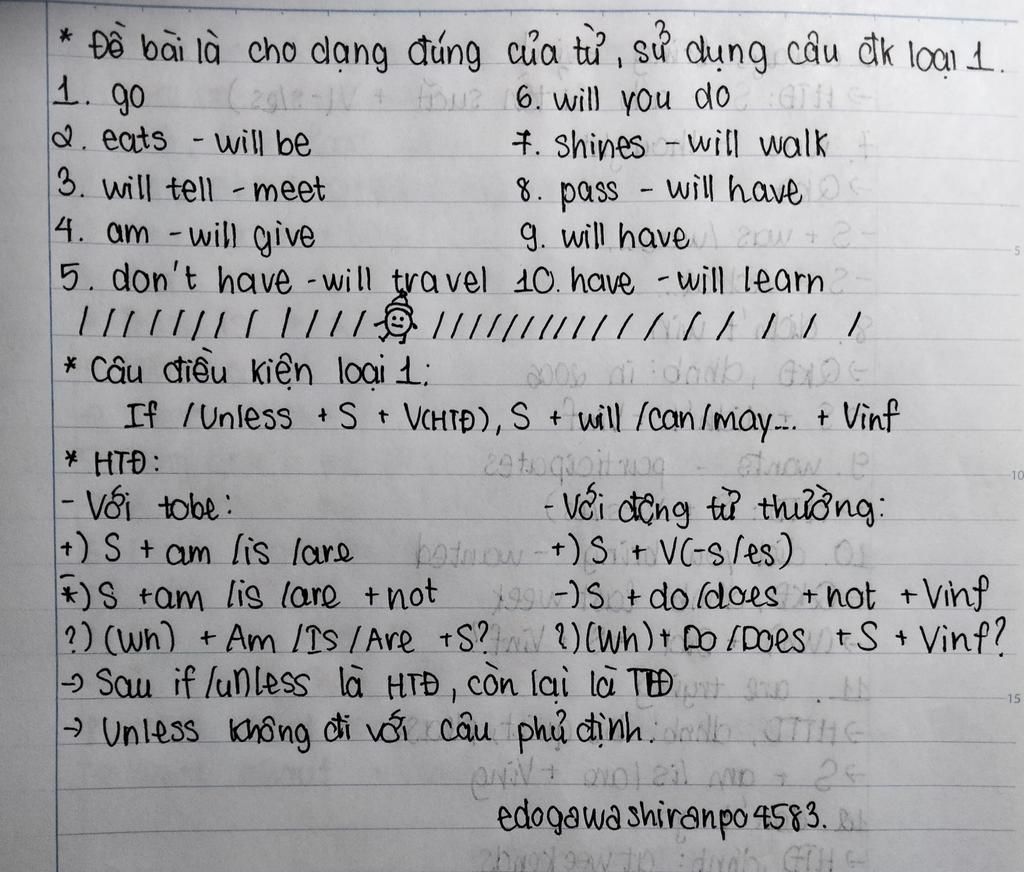 * Đề bài là cho dạng đúng của từ, sử dụng câu đk loại 1.
1. go 6. will you do
2. eats - will be 7. shines - will walk
3. will tell - meet 8. pass - will have
4. am - will give 9. will have
5. don't have - will travel 10. have - will learn
* Câu điều kiện loại 1:
If /Unless + S + V(HTĐ), S + will /can/may... + Vinf
* HTĐ:
- Với tobe: - Với động từ thường:
+) S + am /is /are +) S + V(-s/es)
-) S + am /is /are + not -) S + do/does + not + Vinf
?) (Wh) + Am /Is /Are + S? ?) (Wh) + Do /Does + S + Vinf?
→ Sau if/unless là HTĐ, còn lại là TLĐ
→ Unless không đi với câu phủ định.
edogawashiranpo4583.